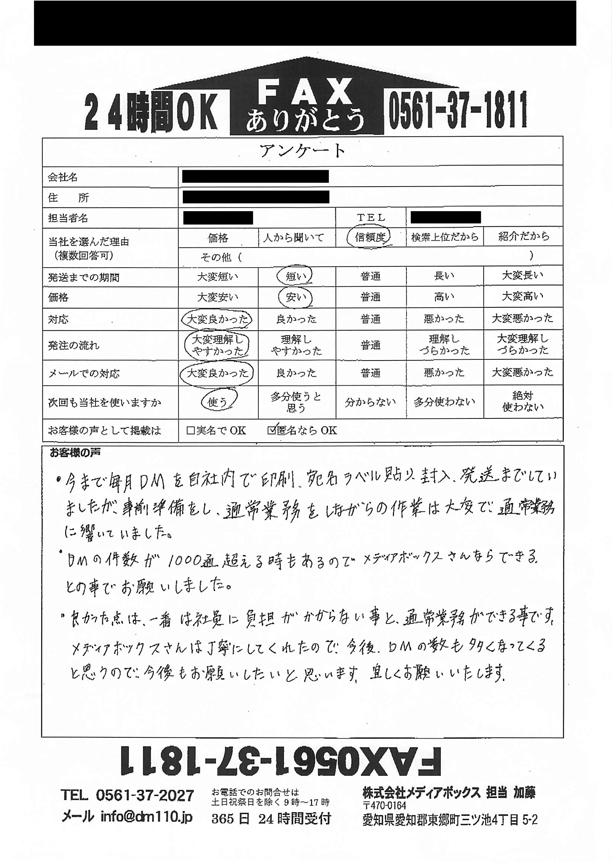 24時間OK
FAX
ありがとう
0561-37-1811
アンケート
会社名
住 所
担当者名 TEL
当社を選んだ理由
(複数回答可)
価格 人から聞いて 信頼度 検索上位だから 紹介だから
その他 ( )
発送までの期間 大変短い 短い 普通 長い 大変長い
価格 大変安い 安い 普通 高い 大変高い
対応 大変良かった 良かった 普通 悪かった 大変悪かった
発注の流れ 大変理解しやすかった 理解しやすかった 普通 理解しづらかった 大変理解しづらかった
メールでの対応 大変良かった 良かった 普通 悪かった 大変悪かった
次回も当社を使いますか 使う 多分使うと思う 分からない 多分使わない 絶対使わない
お客様の声として掲載は □実名でOK ☑匿名ならOK
お客様の声
・今まで毎月DMを自社内で印刷、宛名ラベル貼り、封入、発送までしてい
ましたが、事前準備をし、通常業務をしながらの作業は大変で通常業務
に響いていました。
・DMの件数が1000通超える時もあるのでメディアボックスさんならできる
との事でお願いしました。
・良かった点は、一番は社員に負担がかからない事と、通常業務ができる事です。
メディアボックスさんは丁寧にしてくれたので今後、DMの数も多くなってくる
と思うので、今後もお願いしたいと思います。宜しくお願いいたします。
FAX0561-37-1811
TEL 0561-37-2027
メール info@dm110.jp
お電話でのお問合せは
土日祝祭日を除く9時～17時
365日 24時間受付
株式会社メディアボックス 担当 加藤
〒470-0164
愛知県愛知郡東郷町三ツ池4丁目5-2